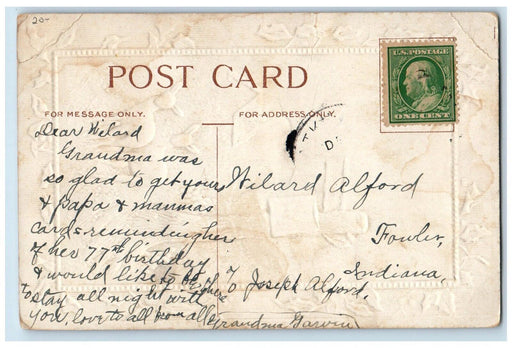 20-
U.S. POSTAGE
ONE CENT
POST CARD
FOR MESSAGE ONLY.
FOR ADDRESS ONLY.
Dear Wilard
Grandma was
so glad to get your
& papa & mammas
cards reminding her
of her 77th birthday
& would like to be
to stay all night with
you, love to all from all
Grandma Garvin
Wilard Alford
Fowler,
Indiana,
℅ Joseph Alford,